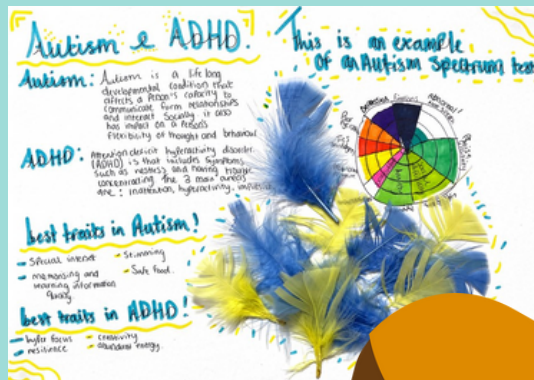 Autism & ADHD.
Autism: Autism is a life long
developmental condition that
affects a Person's capacity to
communicate form relationships
and interact Socially it also
has impact on a Persons
flexibility of thought and behaviour
ADHD: Attention deficit hyperactivity disorder
(ADHD) is that includes Symptoms
such as and having trouble
concentrating the 3 main areas
are: inattention, hyperactivity,
best traits in Autism!
Special interest
memorising and
learning information
Stimming
Safe food.
best traits in ADHD!
hyper focus
resilience
creativity
abundant energy.
This is an example
of an Autism Spectrum test